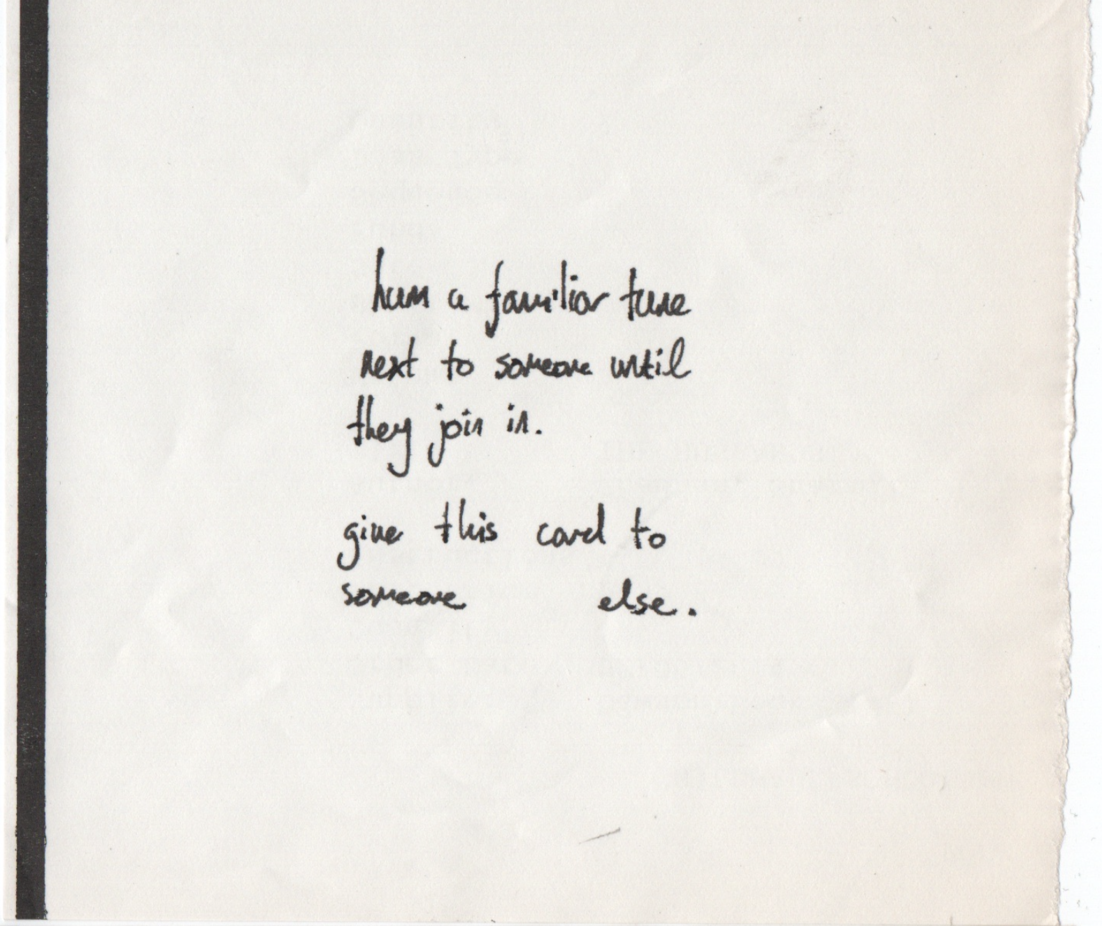 hum a familiar tune
next to someone until
they join in.
give this card to
someone else.